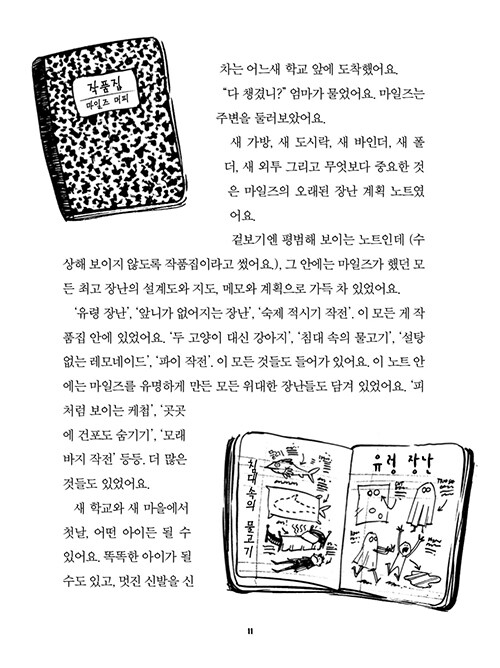 작품집
마일즈 머피
차는 어느새 학교 앞에 도착했어요.
“다 챙겼니?” 엄마가 물었어요. 마일즈는
주변을 둘러보았어요.
새 가방, 새 도시락, 새 바인더, 새 폴
더, 새 외투 그리고 무엇보다 중요한 것
은 마일즈의 오래된 장난 계획 노트였
어요.
겉보기엔 평범해 보이는 노트인데 (수
상해 보이지 않도록 작품집이라고 썼어요.), 그 안에는 마일즈가 했던 모
든 최고 장난의 설계도와 지도, 메모와 계획으로 가득 차 있었어요.
‘유령 장난’, ‘앞니가 없어지는 장난’, ‘숙제 적시기 작전’. 이 모든 게 작
품집 안에 있었어요. ‘두 고양이 대신 강아지’, ‘침대 속의 물고기’, ‘설탕
없는 레모네이드’, ‘파이 작전’. 이 모든 것들도 들어가 있어요. 이 노트 안
에는 마일즈를 유명하게 만든 모든 위대한 장난들도 담겨 있었어요. ‘피
처럼 보이는 케첩’, ‘곳곳
에 건포도 숨기기’, ‘모래
바지 작전’ 등등. 더 많은
것들도 있었어요.
새 학교와 새 마을에서
첫날, 어떤 아이든 될 수
있어요. 똑똑한 아이가 될
수도 있고, 멋진 신발을 신
침대 속의 물고기
유령 장난
11